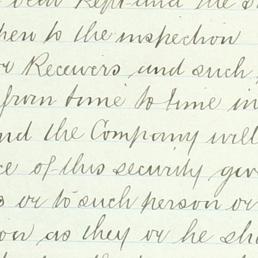 Kept and the
open to the inspection
or Receivers and such
from time to time in
and the Company will
ce of this security give
s or to such person or
ion as they or he sha